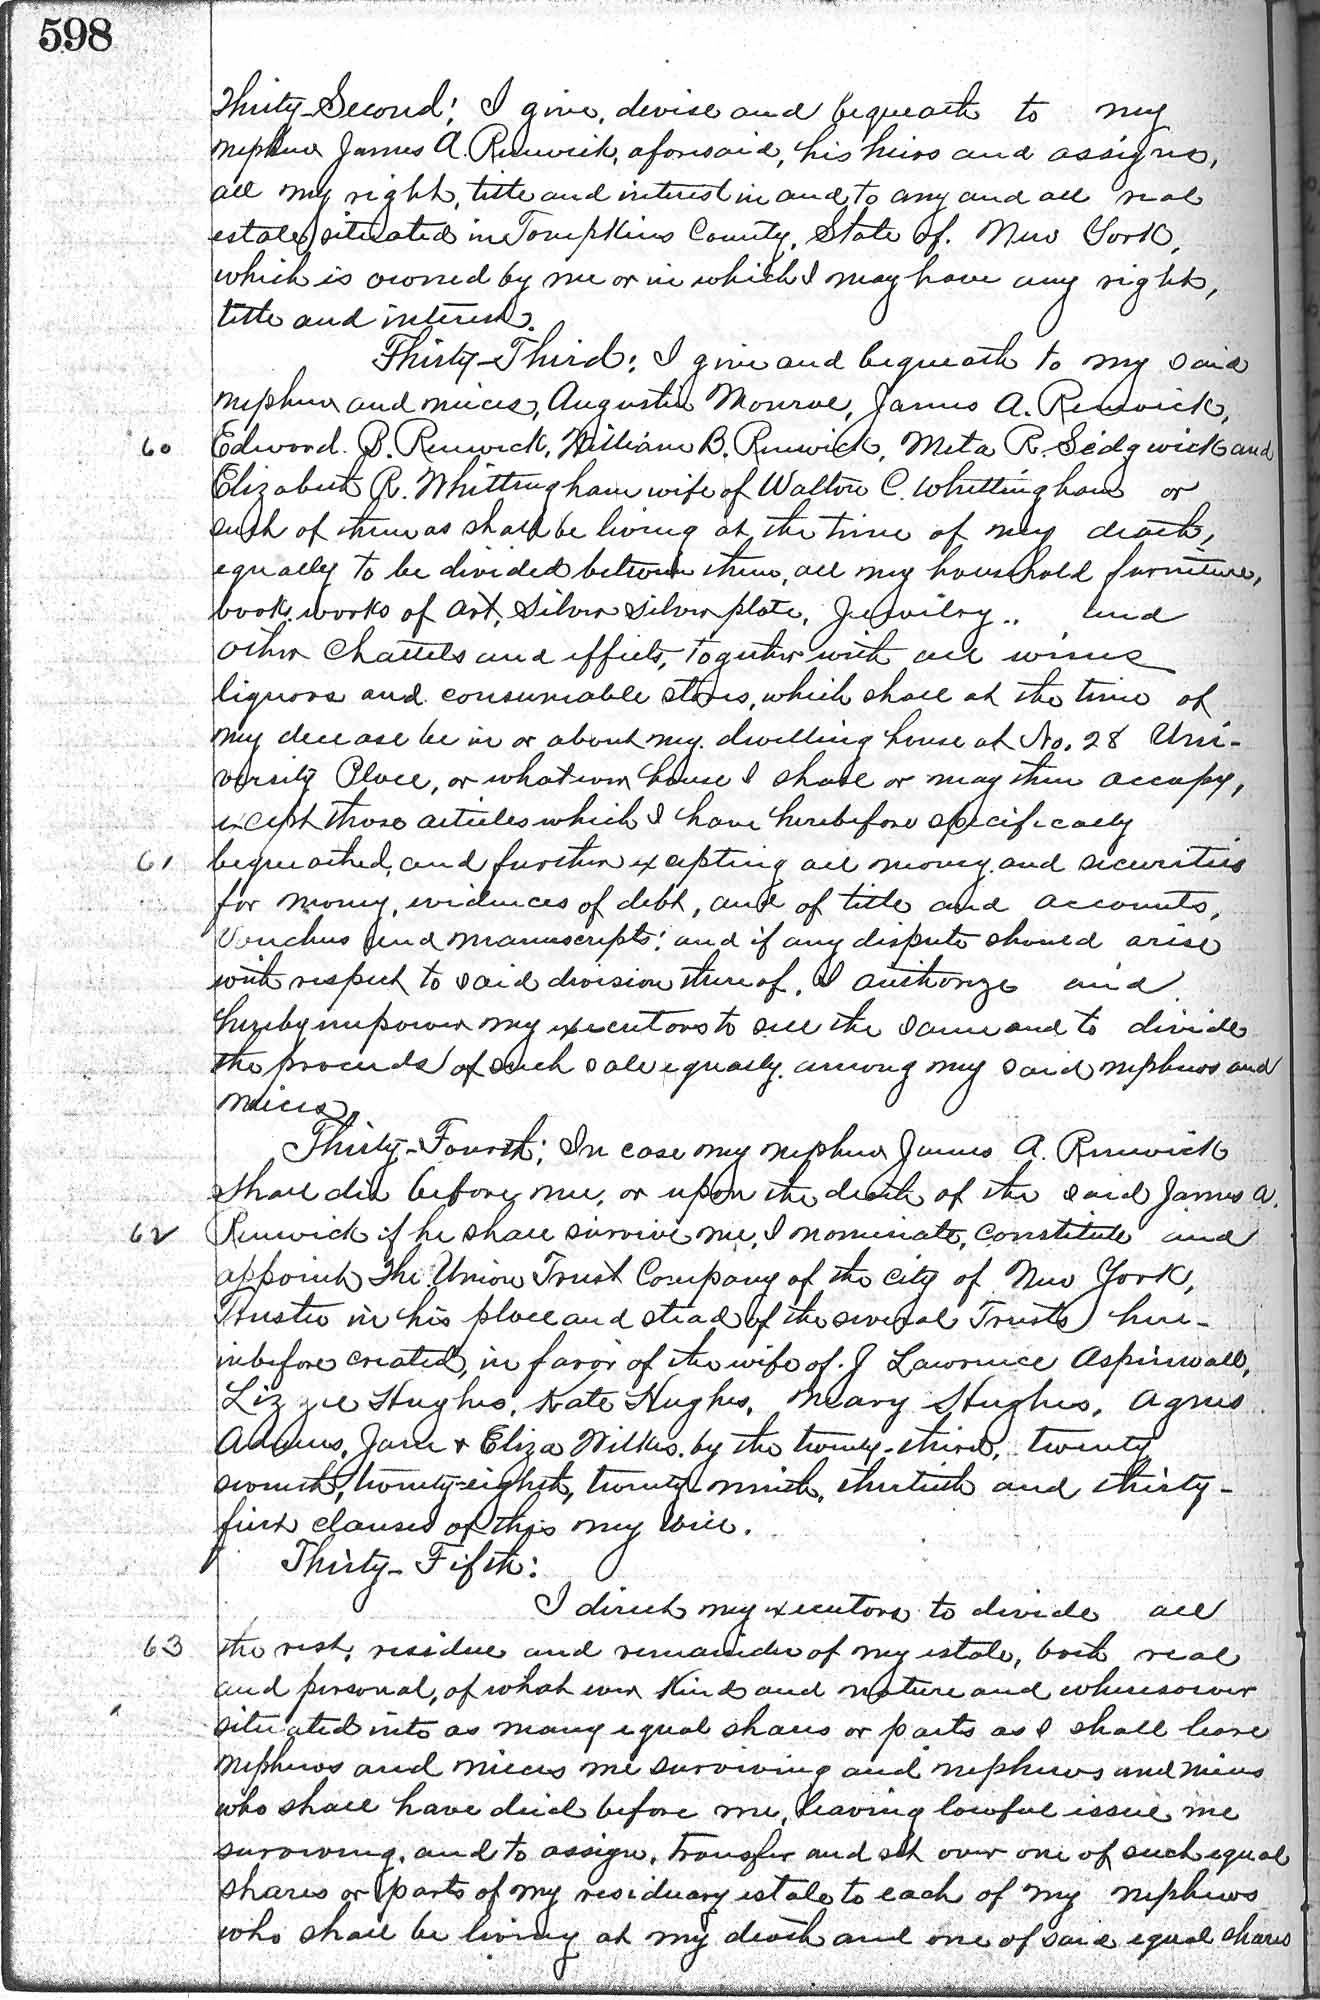 598
Thirty-Second: I give, devise and bequeath to my
nephew James A. Renwick, aforesaid, his heirs and assigns,
all my right, title and interest in and to any and all real
estate, situated in Tompkins County, State of. New York,
which is owned by me or in which I may have any right,
title and interest.
Thirty-Third: I give and bequeath to my said
nephew and nieces, Augustin Monroe, James A. Renwick,
60 Edward. B. Renwick, William B. Renwick, Meta R. Sedgwick and
Elizabeth R. Whittingham wife of Walton C. Whittingham or
such of them as shall be living at the time of my death,
equally to be divided between them, all my household furniture,
book, works of art, silver silver plate, Jewelry., and
other Chattels and effects, together with all wines
liquors and consumable stores, which shall at the time of
my decease be in or about my dwelling house at No. 28 Uni-
versity Place, or whatever house I shall or may then occupy,
except those articles which I have herebefore specifically
61 bequeathed, and further excepting all money and securities
for money, evidences of debt, and of title and accounts,
Vouchers and manuscripts: and if any dispute should arise
with respect to said division thereof, I authorize and
hereby empower my executors to sell the same and to divide
the proceeds of such sale equally among my said nephews and
nieces.
Thirty-Fourth: In case my nephew James A. Renwick
shall die before me, or upon the death of the said James A.
62 Renwick if he shall survive me, I nominate, constitute and
appoint The Union Trust Company of the city of New York,
Trustee in his place and stead of the several Trusts here-
inbefore created, in favor of the wife of. J Lawrence Aspinwall,
Lizzie Hughes, Kate Hughes, Mary Hughes, Agnes
Adams, Jane & Eliza Wilkes. by the twenty-third, twenty
seventh, twenty-eighth, twenty-ninth, thirtieth and thirty-
first clauses of this my will.
Thirty-Fifth:
I direct my executors to divide all
63 the rest, residue and remainder of my estate, both real
and personal, of what ever Kind and nature and wheresoever
situated into as many equal shares or parts as I shall leave
nephews and nieces me surviving and nephews and nieces
who shall have died before me, leaving lawful issue me
surviving, and to assign, transfer and set over one of such equal
shares or parts of my residuary estate to each of my nephews
who shall be living at my death and one of said equal shares